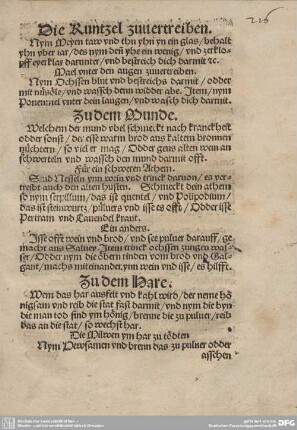 216
Die Runtzel zuuertreiben.
Nym Meyen taw vnd thu yhn yn ein glas/ behalt
yhn vber iar/ des nym den yhe ein wenig/ vnd zerklo-
pff eyerklar darunter/ vnd bestreich dich darmit ꝛc.
Mael vnter den augen zuuertreiben.
Nym Ochssen blut vnd bestreichs darmit/ odder
mit nusöle/ vnd wassch denn widder abe. Item/ nym
vnter dein laugen/ vnd wasch dich darmit.
Zu dem Munde.
Welchem der mund vbel schmeckt nach kranckheit
odder sonst/ der esse warm brod aus kalten bronnen
nüchtern/ so viel er mag/ Odder gens alten wein an
schwerteln vnd wassch den mund darmit offt.
Für ein schweren Athem.
Seud Nesseln ym wein vnd trinck dauon/ es ver-
treibt auch den alten husten. Schmeckt dein athem
so nym serpillum/ das ist quentel/ vnd Polipodium/
das ist steinwurtz/ puluers vnd isse es offt/ Odder isse
Pertram vnd Lauendel kraut.
Ein anders.
Isse offt wein vnd brod/ vnd see puluer darauff/ ge-
macht aus Saluer. Item trinck ochssen zungen was-
ser/ Odder nym die öbern rinden vom brod vnd Gal-
gant/ machs miteinander ynn wein vnd isse/ es hilfft.
Zu dem Hare.
Wem das har ausfelt vnd kahl wird/ der neme hö
nigsam vnd reib die stat fast darmit/ vnd nym die byn
die man tod find ym hönig/ brenne die zu puluer/ reib
das an die stat/ so wechst har.
Die Milwen ym har zu tödten
Nym Pewsamen vnd brenn das zu puluer odder
asschen